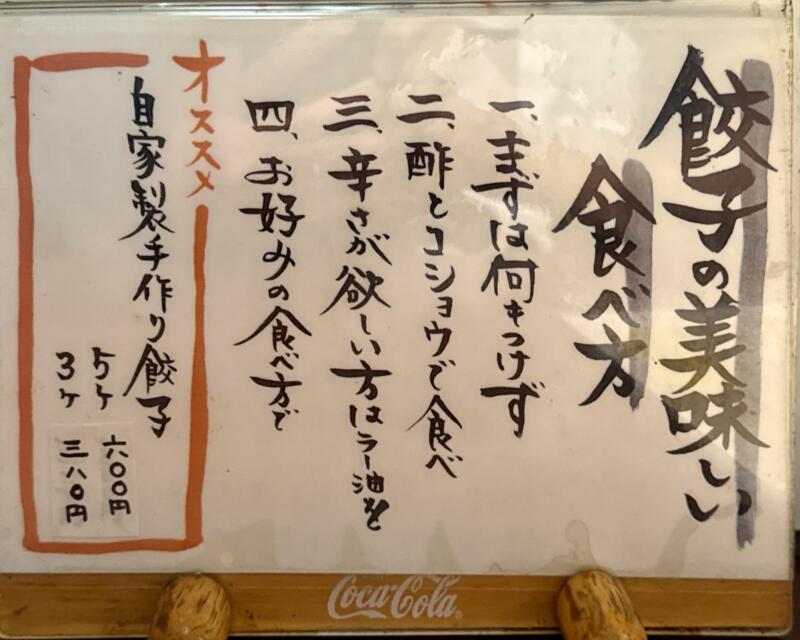 餃子の美味しい
食べ方
一、まずは何もつけず
二、酢とコショウで食べ
三、辛さが欲しい方はラー油を
四、お好みの食べ方で
オススメ
自家製手作り餃子
5ヶ 六〇〇円
3ヶ 三八〇円
Coca-Cola